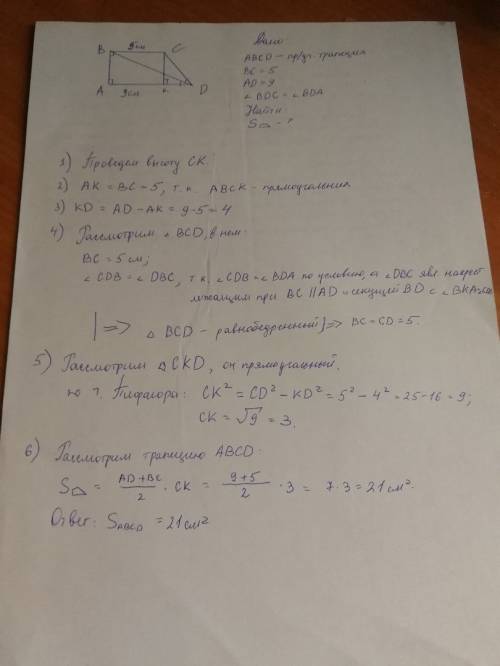 5см
B C
A 9см K D
Дано:
ABCD - пр/уг. трапеция
BC = 5
AD = 9
∠BDC = ∠BDA
Найти:
S - ?
1) Проведем высоту CK.
2) AK = BC = 5, т.к. ABCK - прямоугольник
3) KD = AD - AK = 9-5 = 4
4) Рассмотрим △BCD, в нем:
BC = 5 см;
∠CDB = ∠DBC, т.к. ∠CDB = ∠BDA по условию, а ∠DBC явл. накрест
лежащим при BC || AD и секущей BD с
|=> △BCD - равнобедренный |=> BC = CD = 5.
5) Рассмотрим △CKD, он прямоугольный.
по т. Пифагора: CK² = CD² - KD² = 5² - 4² = 25-16 = 9;
CK = √9 = 3.
6) Рассмотрим трапецию ABCD:
S = AD+BC/2 · CK = 9+5/2 · 3 = 7·3 = 21 см².
Ответ: S ABCD = 21 см²